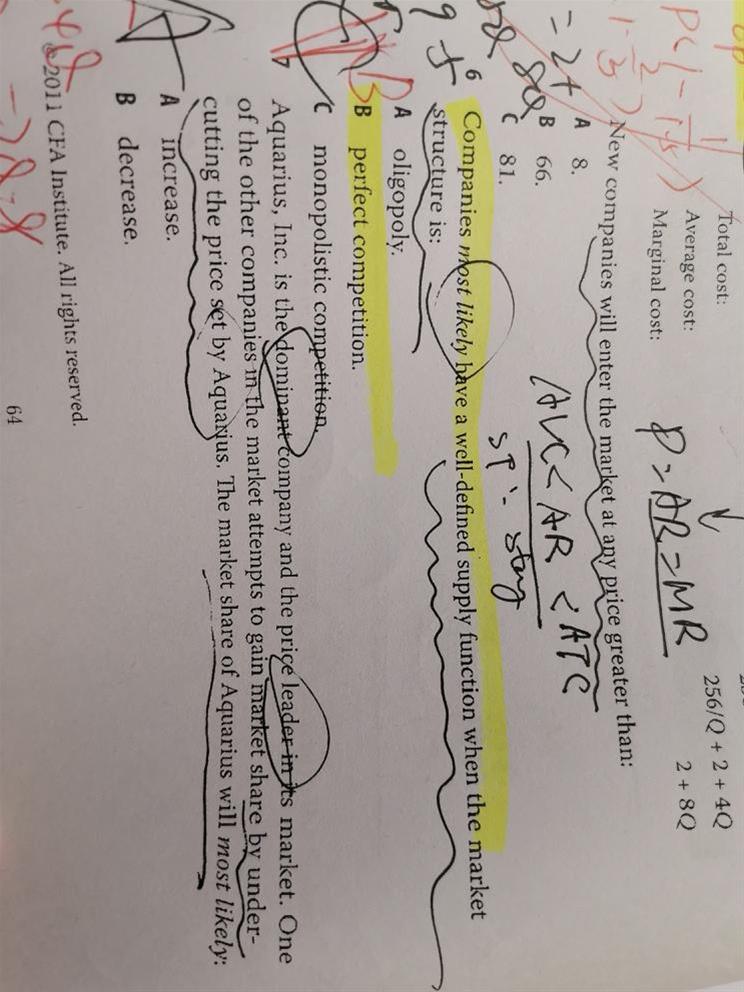 Total cost:
Average cost: 256/Q + 2 + 4Q
Marginal cost: 2 + 8Q
P = AR = MR
New companies will enter the market at any price greater than:
A 8.
B 66.
C 81.
AVC < AR < ATC
ST: stay
6 Companies most likely have a well-defined supply function when the market
structure is:
A oligopoly.
B perfect competition.
C monopolistic competition.
Aquarius, Inc. is the dominant company and the price leader in its market. One
of the other companies in the market attempts to gain market share by under-
cutting the price set by Aquarius. The market share of Aquarius will most likely:
A increase.
B decrease.
©2011 CFA Institute. All rights reserved.
64